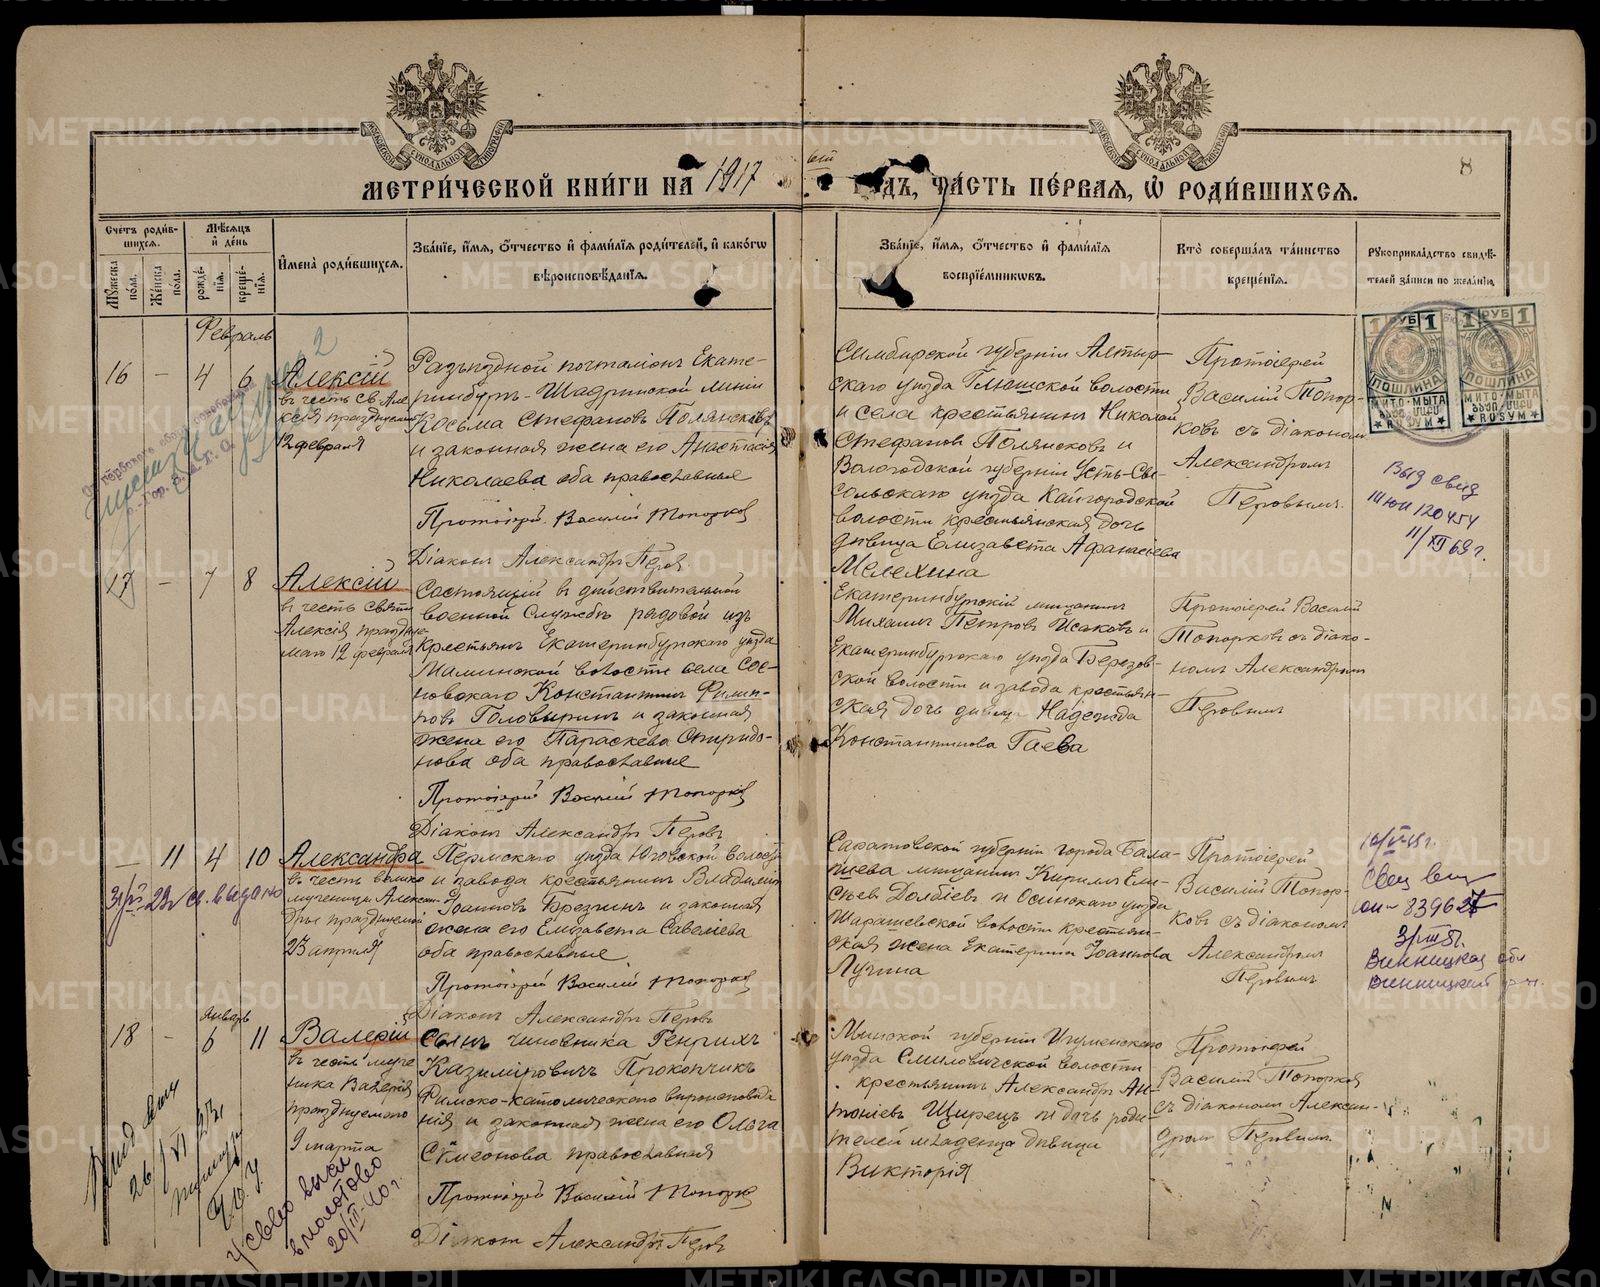 МЕТРИ́ЧЕСКОЙ КНИ́ГИ НА 1917 ГОДЪ, ЧА́СТЬ ПЕ́РВАЯ, Ѡ҆ РОДИ́ВШИХСЯ.
8
Сче́тъ роди́в-
шихся.
Мꙋ́жеска по́ла.
Же́нска по́ла.
Мѣ́сяцъ
и҆ де́нь
рожде́-
нїя.
креще́-
нїя.
И҆мена̀ роди́вшихся.
Зва́нїе, и҆́мя, ѻ҆́тчество и҆ фами́лїя роди́телей, и҆ како́гѡ
вѣроисповѣ́данїя.
Зва́нїе, и҆́мя, ѻ҆́тчество и҆ фами́лїя
воспрїе́мникѡвъ.
Кто̀ соверша́лъ та́инство
креще́нїя.
Рꙋкоприкла́дство свидѣ́-
телей за́писи по жела́нїю.
Февраль
16 - 4 6
Алексій
въ честь св. Але-
ксія празднуемаго
12 февраля
Разъѣздной почталіонъ Екате-
ринбургъ-Шадринской линіи
Косьма Стефановъ Полянсковъ
и законная жена его Анастасія
Николаева оба православные
Протоіерей Василій Топорков
Діаконъ Александръ Перов
Симбирской губерніи Алтыр-
скаго уѣзда
волости
и села крестьянинъ Николай
Стефановъ Полянсковъ и
Вологодской губерніи Усть-Сы-
сольскаго уѣзда Кайгородской
волости крестьянская дочь
дѣвица Елизавета Афанасіева
Мелехина
Протоіерей
Василій Топор-
ковъ съ діакономъ
Александромъ
Перовымъ.
1 РУБ 1
ПОШЛИНА
МИТО · МЫТА
ROSYM
1 РУБ 1
ПОШЛИНА
МИТО · МЫТА
ROSYM
Выд свид
III ЮИ 120454
11/XII 69 г.
17 - 7 8
Алексій
въ честь святи
Алексія праздну-
маго 12 февраля
Состоящій въ дѣйствительной
военной службѣ рядовой изъ
крестьянъ Екатеринбургскаго уѣзда
Маминской волости села Сос-
новскаго Константинъ Филип-
повъ Головыринъ и законная
жена его Параскева Спиридо-
нова оба православные
Протоіерей Василій Топорков
Діаконъ Александръ Перовъ
Екатеринбургскій мѣщанинъ
Михаилъ Петровъ Исаковъ и
Екатеринбургскаго уѣзда Березов-
ской волости и завода крестьян-
ская дочь дѣвица Надежда
Константинова Гаева
Протоіерей Василій
Топорковъ съ діако-
номъ Александромъ
Перовымъ
— 11 4 10
Александра
въ честь велико
мученицы Алексан-
дры празднуемой
23 апрѣля
Пермскаго уѣзда Юговской волости
и завода крестьянинъ Владимiръ
Іоанновъ Брезгинъ и законная
жена его Елизавета Савеліева
оба православные
Протоіерей Василій Топорков
Діаконъ Александръ Перовъ
Саратовской губерніи города Бала-
шева мѣщанинъ Кириллъ Ели-
сѣевъ Долбіевъ и Осинскаго уѣзда
Шарашевской волости крестьян-
ская жена Екатерина Іоаннова
Лучина
Протоіерей
Василій Топор-
ковъ съ діакономъ
Александромъ
Перовымъ
ЮИ- 839627
Винницкая обл
Винницкий р-н.
Январь
18 - 6 11
Валерій
въ честь муче
ника Валерія
празднуемаго
9 марта
Сынъ чиновника Генрихъ
Казиміровичъ Прокопчикъ
Римско-католическаго вѣроисповѣда
нія и законная жена его Ольга
Симеонова православная
Протоіерей Василій Топорков
Діаконъ Александръ Перов
Минской губерніи Игуменскаго
уѣзда Смиловичской волости
крестьянинъ Александръ Ан-
тоніевъ Щирецъ и дочь роди-
телей младенца дѣвица
Викторія
Протоіерей
Василій Топорков
съ діакономъ Алексан-
дромъ Перовымъ.
в Молотово
20/III-40 г.
METRIKI.GASO-URAL.RU